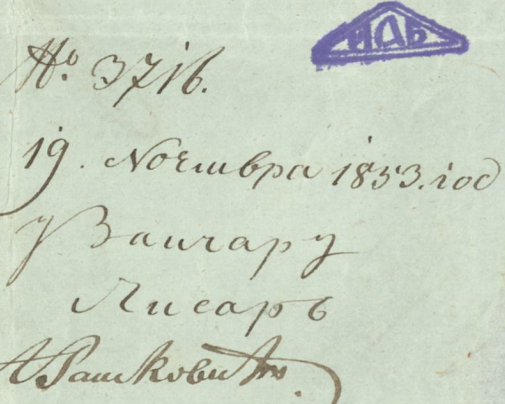 ИДБ
№ 3716.
19. Ноемвра 1853. год
у Ваичару
Писаръ
Рашковић